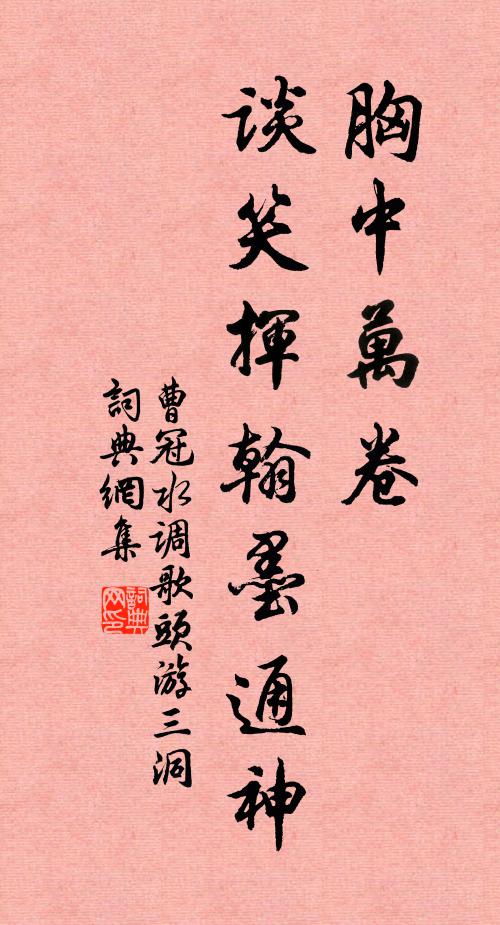 胸中萬卷
谈笑揮翰墨通神
曹冠水调歌頭游三洞
詞典網集
詞典网印